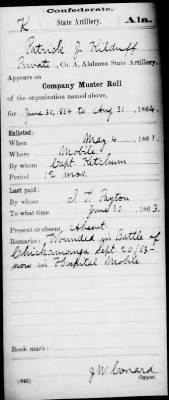 Confederate.
K State Artillery. Ala.
Patrick J Kilduff
Private, Co. A, Alabama State Artillery.
Appears on
Company Muster Roll
of the organization named above,
for June 30, 1864 to Aug 31, 1864.
Enlisted:
When May 4, 1861.
Where Mobile
By whom Capt. Ketchum
Period 12 mos.
Last paid:
By whom J. T. Payton
To what time June 30, 1863.
Present or absent, Absent
Remarks: Wounded in Battle of
Chickamauga Sept. 20/63-
now in Hospital Mobile
Book mark:
(642) J W Conard
Copyist.